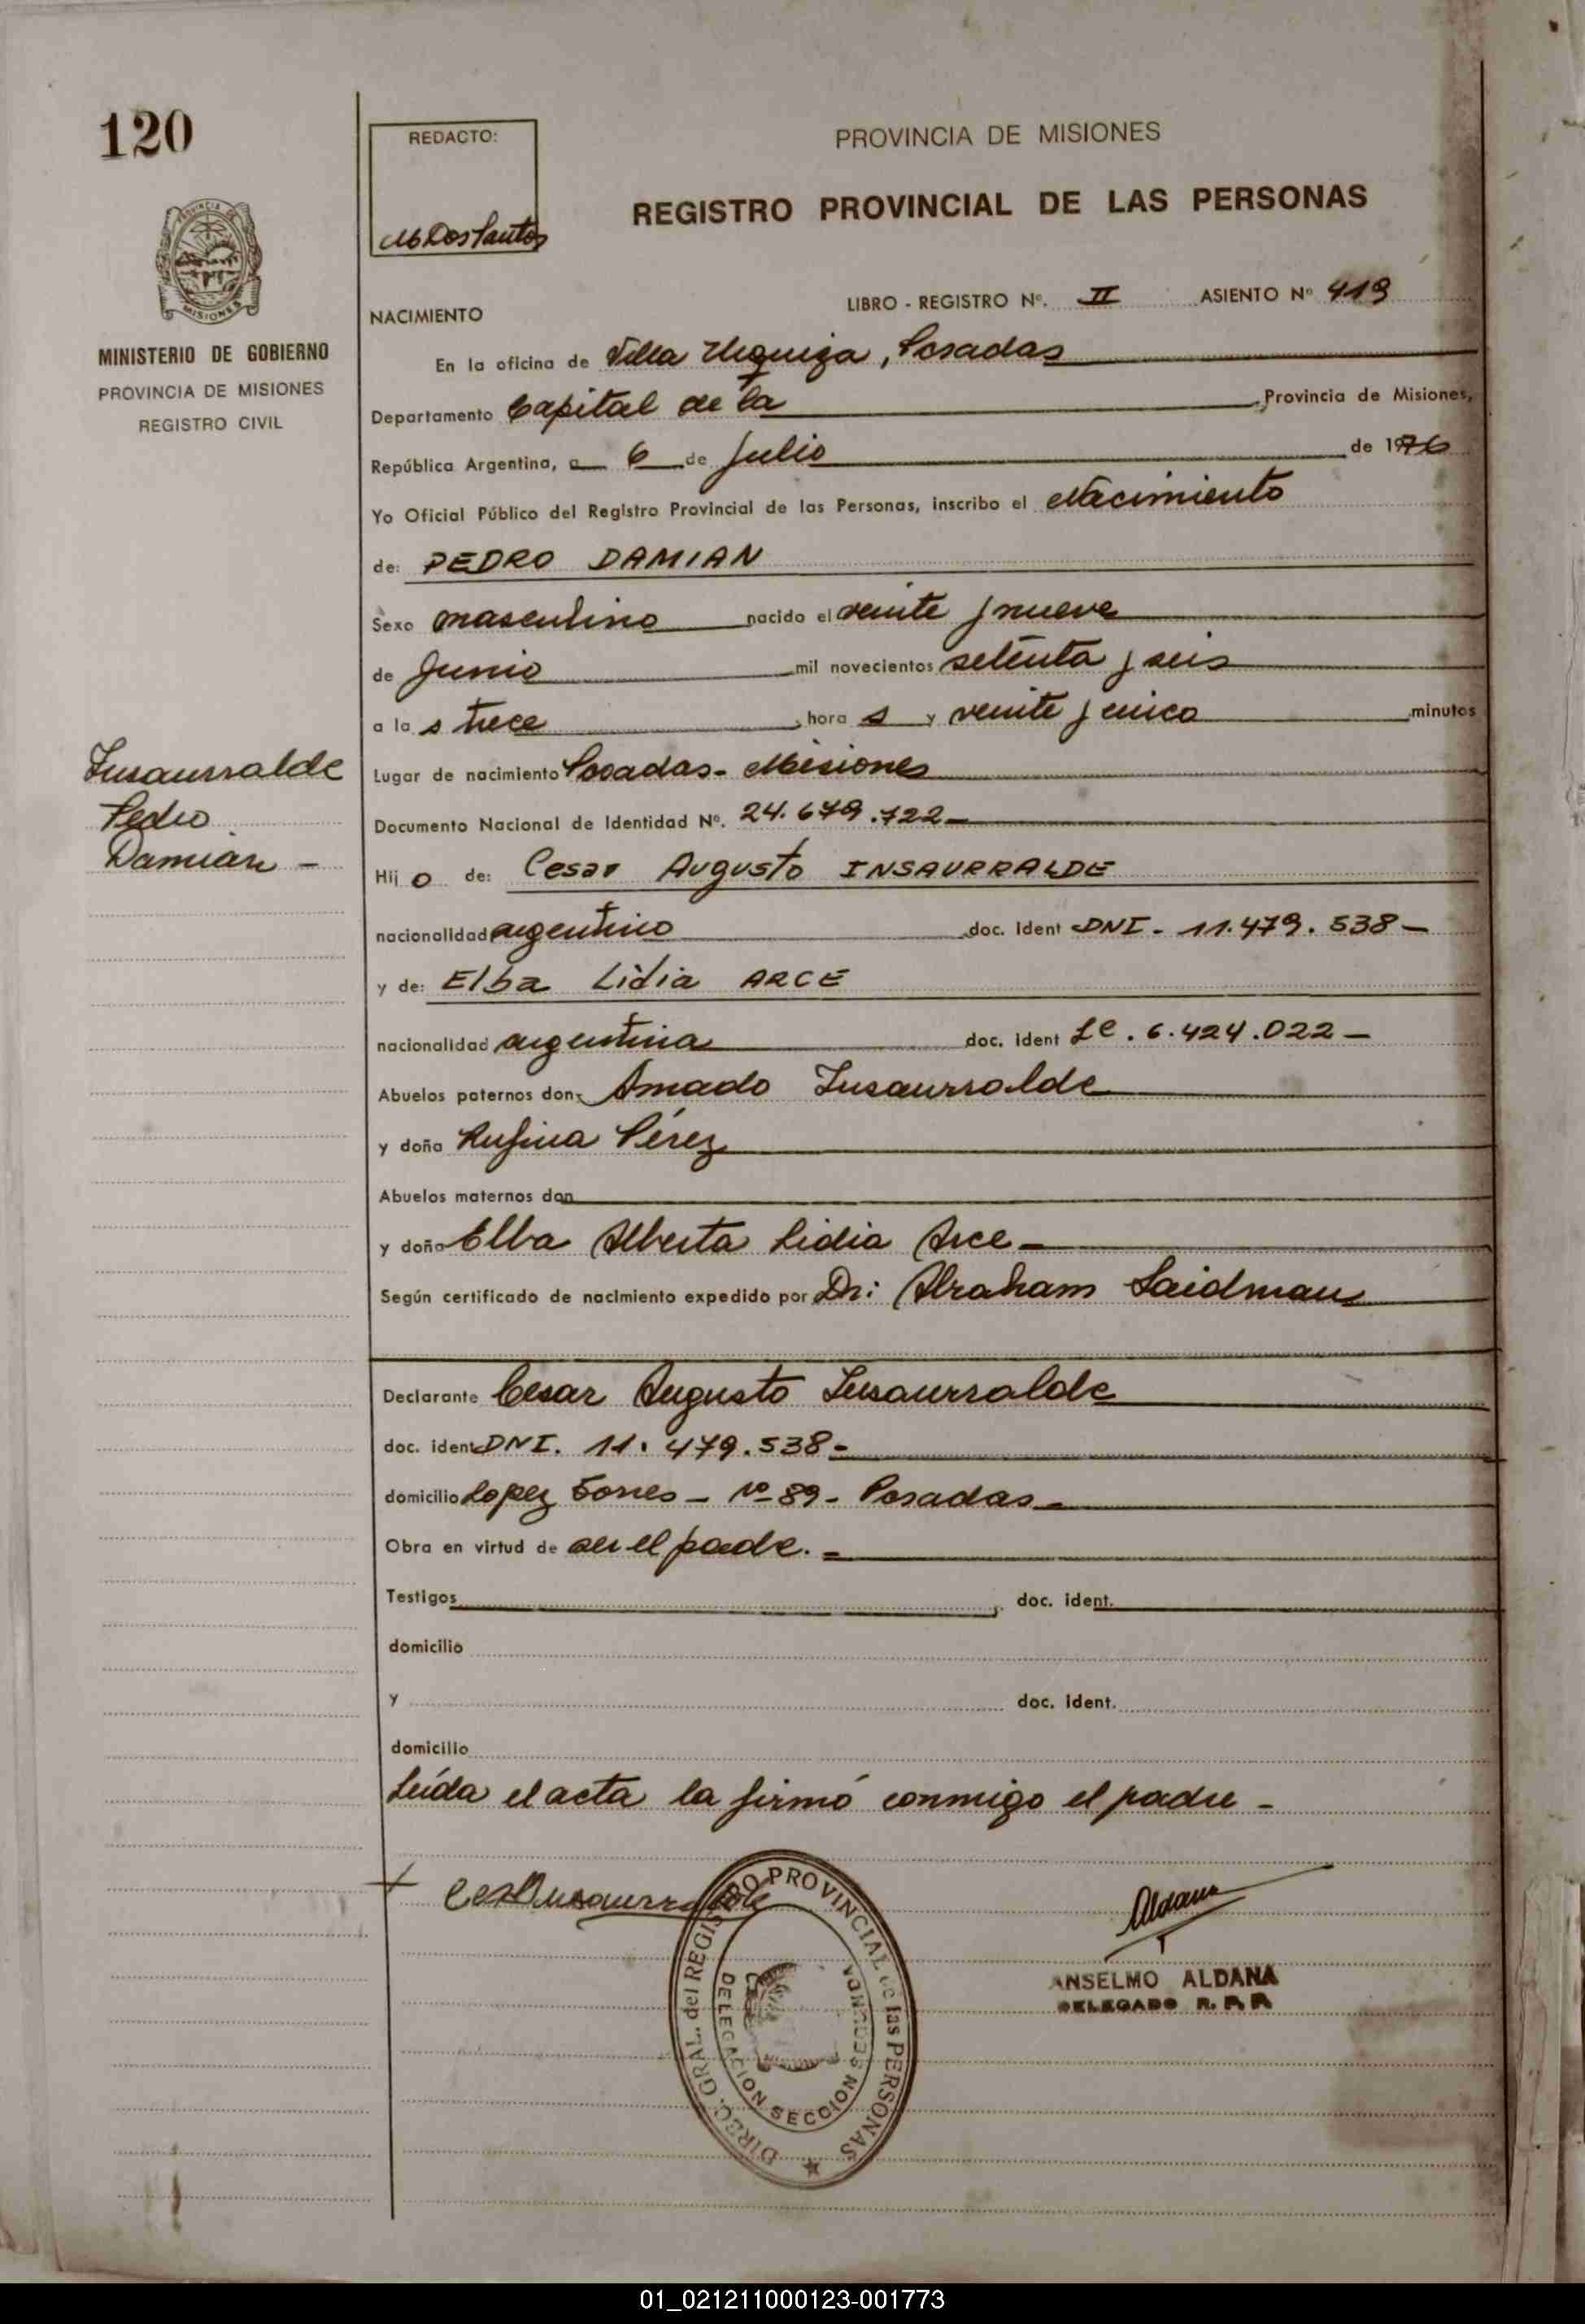 120
REDACTO:
MbDosSantos
PROVINCIA DE MISIONES
REGISTRO PROVINCIAL DE LAS PERSONAS
PROVINCIA DE
MISIONES
MINISTERIO DE GOBIERNO
PROVINCIA DE MISIONES
REGISTRO CIVIL
NACIMIENTO
LIBRO - REGISTRO Nº. II ASIENTO Nº 419
En la oficina de Villa Urquiza, Posadas
Departamento Capital de la Provincia de Misiones,
República Argentina, a 6 de Julio de 1976
Yo Oficial Público del Registro Provincial de las Personas, inscribo el Nacimiento
de: PEDRO DAMIAN
Sexo masculino nacido el veinte y nueve
de Junio mil novecientos setenta y seis
a la s trece hora s y veinte y cinco minutos
Insaurralde
Pedro
Damian -
Lugar de nacimiento Posadas - Misiones
Documento Nacional de Identidad Nº. 24.679.722 -
Hij o de: Cesar Augusto INSAURRALDE
nacionalidad argentino doc. ident DNI - 11.479.538 -
y de: Elba Lidia ARCE
nacionalidad argentina doc. ident Lc. 6.424.022 -
Abuelos paternos don Amado Insaurralde
y doña Rufina Pérez
Abuelos maternos don
y doña Elba Alberta Lidia Arce -
Según certificado de nacimiento expedido por Dr: Abraham Saidman
Declarante Cesar Augusto Insaurralde
doc. ident DNI. 11.479.538 -
domicilio Lopez Torres - nº 89 - Posadas -
Obra en virtud de ser el padre. -
Testigos doc. ident.
domicilio
y doc. ident.
domicilio
Leída el acta la firmó conmigo el padre -
CesAInsaurralde
Aldana
ANSELMO ALDANA
DELEGADO R. P. P.
DIREC. GRAL. del REGISTRO PROVINCIAL de las PERSONAS
DELEGACION SECCION SEGUNDA
01_021211000123-001773